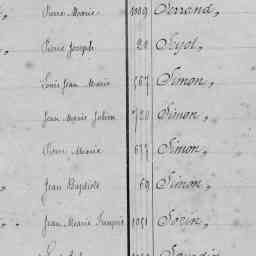 Pierre Marie 1009 Serrand,
Pierre Joseph 20
Louis Jean Marie 567 Simon,
Jean Marie Julien 720 Simon,
Pierre Marie 677 Simon,
Jean Baptiste 69 Simon,
Jean Marie François 1051 Sorin,